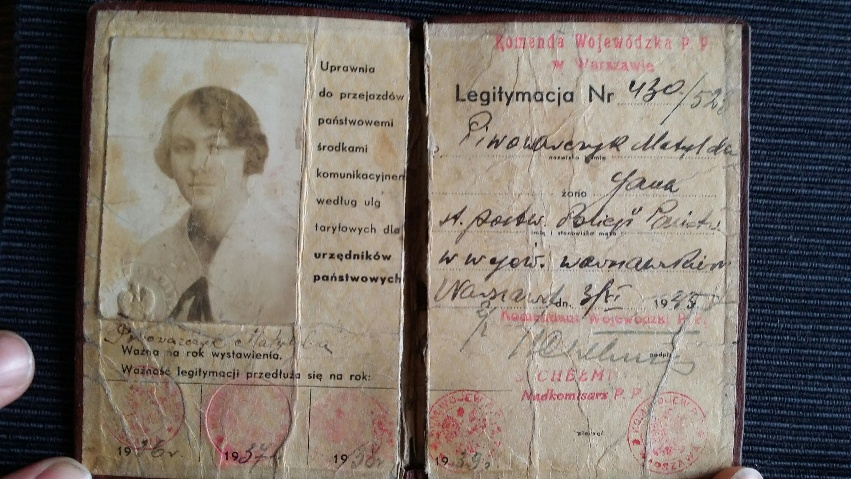 Uprawnia
do przejazdów
państwowemi
środkami
komunikacyjnemi
według ulg
taryfowych dla
urzędników
państwowych
Piwowarczyk Matylda
Ważna na rok wystawienia.
Ważność legitymacji przedłuża się na rok:
1936 r.
1937
1938 r.
Komenda Wojewódzka P P
w Warszawie
Legitymacja Nr 430/528
Piwowarczyk Matylda
nazwisko i imię
żona Jana
st. post. Policji Państw.
imię i stanowisko męża
w wojew. warszawskiem
Warszawa dn. 3/VI 1935
Komendant Wojewódzki P. P.
podpis
CHEŁM
Nadkomisarz P. P.
1939